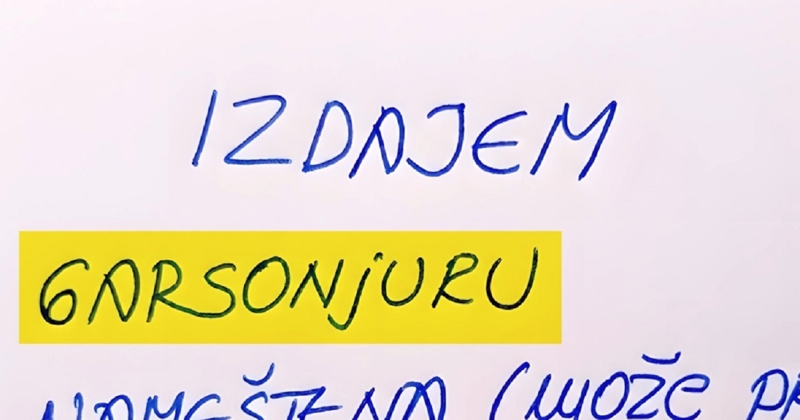 IZDAJEM
GARSONjURU
NAMEŠTENA (MOŽE